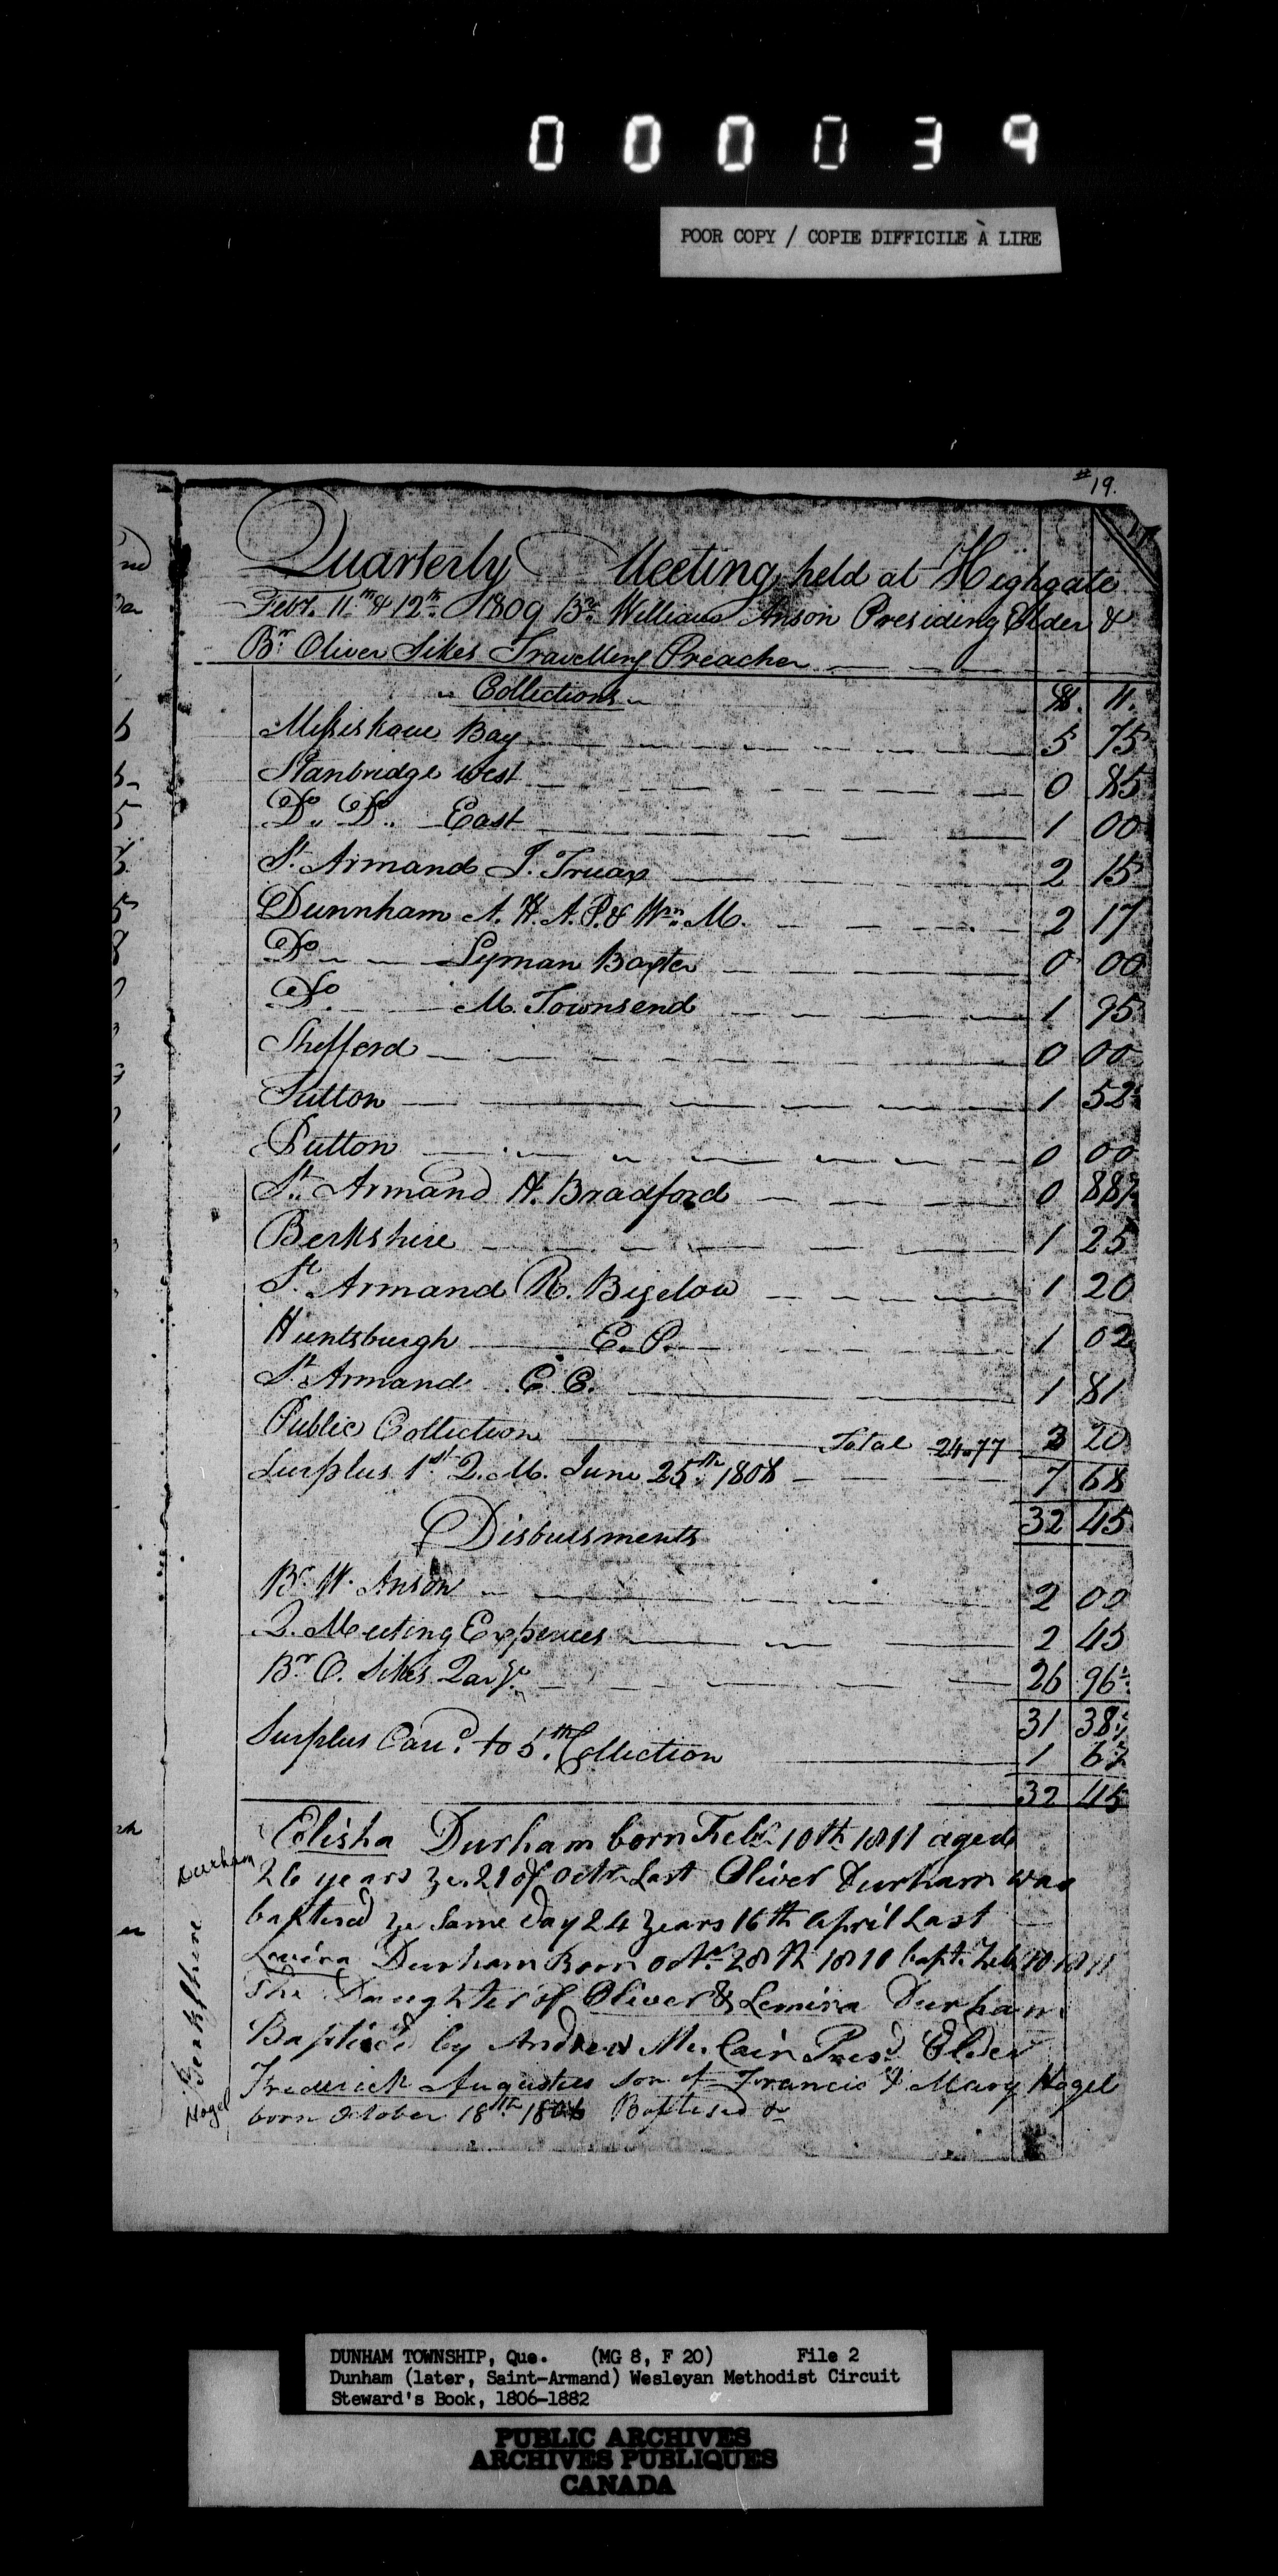 000039
POOR COPY / COPIE DIFFICILE À LIRE
19.
Quarterly Meeting held at Highgate
Feby. 11th & 12th 1809 Br. William Anson Presiding Elder &
Br. Oliver Sikes Travelling Preacher
Collections
Missiskoue Bay 5 75
Stanbridge West 0 85
Do Do East 1 00
St. Armand J. Truax 2 15
Dunnham A. H. A. P. & Wm. M. 2 17
Do Lyman Baxter 0 00
Do M. Townsend 1 95
Shefford 0 00
Sutton 1 52
Putton 0 00
St. Armand H. Bradford 0 88½
Berkshire 1 25
St. Armand R. Bigelow 1 20
Huntsburgh E. P. 1 02
St. Armand C. E. 1 81
Public Collection Total 24.77 3 20
Surplus 1st Q. M. June 25th 1808 7 68
32 45
Disbursments
Br. W. Anson 2 00
Q. Meeting Expences 2 45
Br. O. Sikes 26 96
31 38
Surplus Card. to 5th Collection 1 6
32 45
Elisha Durham born Feb 10th 1811 aged
26 years ye 21 of octr Last Oliver Durham was
baptised ye Same day 24 years 16th April Last
Durham Born octr 28th 1810 bapt. Feb 10 1811
The Daughter of Oliver & Lemira Durham
Baptised by Andrew McCain Presd Elder
Frederick Augustus son of Francis & Mary Hogel
born October 18th Baptised &
Durham
Berkshire
Hogel
DUNHAM TOWNSHIP, Que. (MG 8, F 20) File 2
Dunham (later, Saint-Armand) Wesleyan Methodist Circuit
Steward's Book, 1806-1882
PUBLIC ARCHIVES
ARCHIVES PUBLIQUES
CANADA